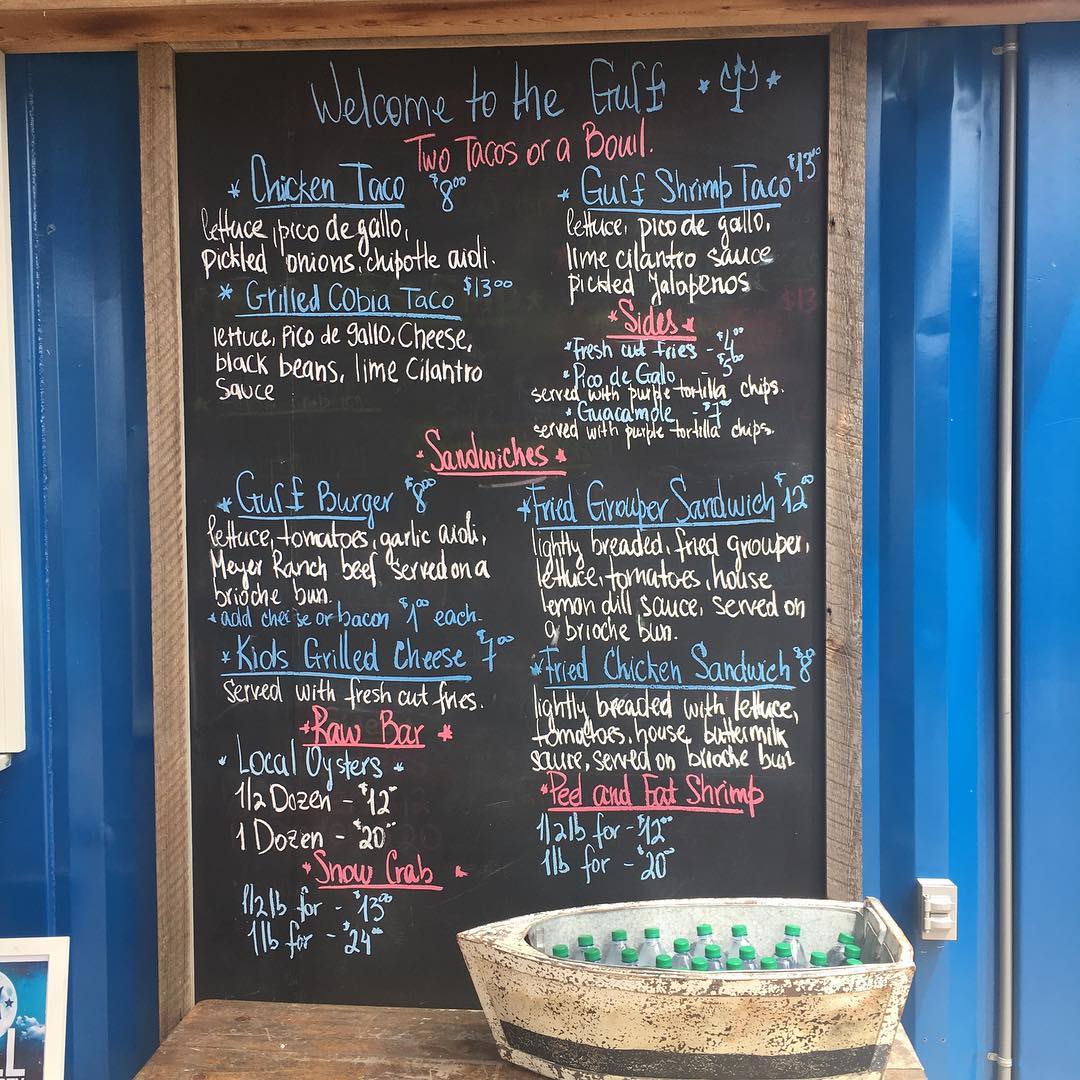 Welcome to the Gulf
Two Tacos or a Bowl.
* Chicken Taco $8.00
lettuce, pico de gallo,
pickled onions, chipotle aioli.
* Grilled Cobia Taco $13.00
lettuce, Pico de gallo, Cheese,
black beans, lime Cilantro
Sauce
* Gulf Shrimp Taco $13.00
lettuce, pico de gallo,
lime cilantro sauce
pickled Jalapenos
* Sides *
* Fresh cut fries - $4.00
* Pico de Galo - $5.00
served with purple tortilla chips.
* Guacamole - $7.00
served with purple tortilla chips.
* Sandwiches *
* Gulf Burger $8.00
lettuce, tomatoes, garlic aioli,
Meyer Ranch beef served on a
brioche bun.
* add cheese or bacon $1.00 each.
* Kids Grilled Cheese $7.00
Served with fresh cut fries.
* Fried Grouper Sandwich $12.00
lightly breaded, fried grouper,
lettuce, tomatoes, house
lemon dill sauce, served on
a brioche bun.
* Fried Chicken Sandwich $8.00
lightly breaded with lettuce,
tomatoes, house buttermilk
sauce, served on brioche bun
* Raw Bar *
* Local Oysters *
1/2 Dozen - $12.00
1 Dozen - $20.00
* Snow Crab *
1/2 lb for - $13.00
1 lb for - $24.00
* Peel and Eat Shrimp
1/2 lb for - $12.00
1 lb for - $20.00